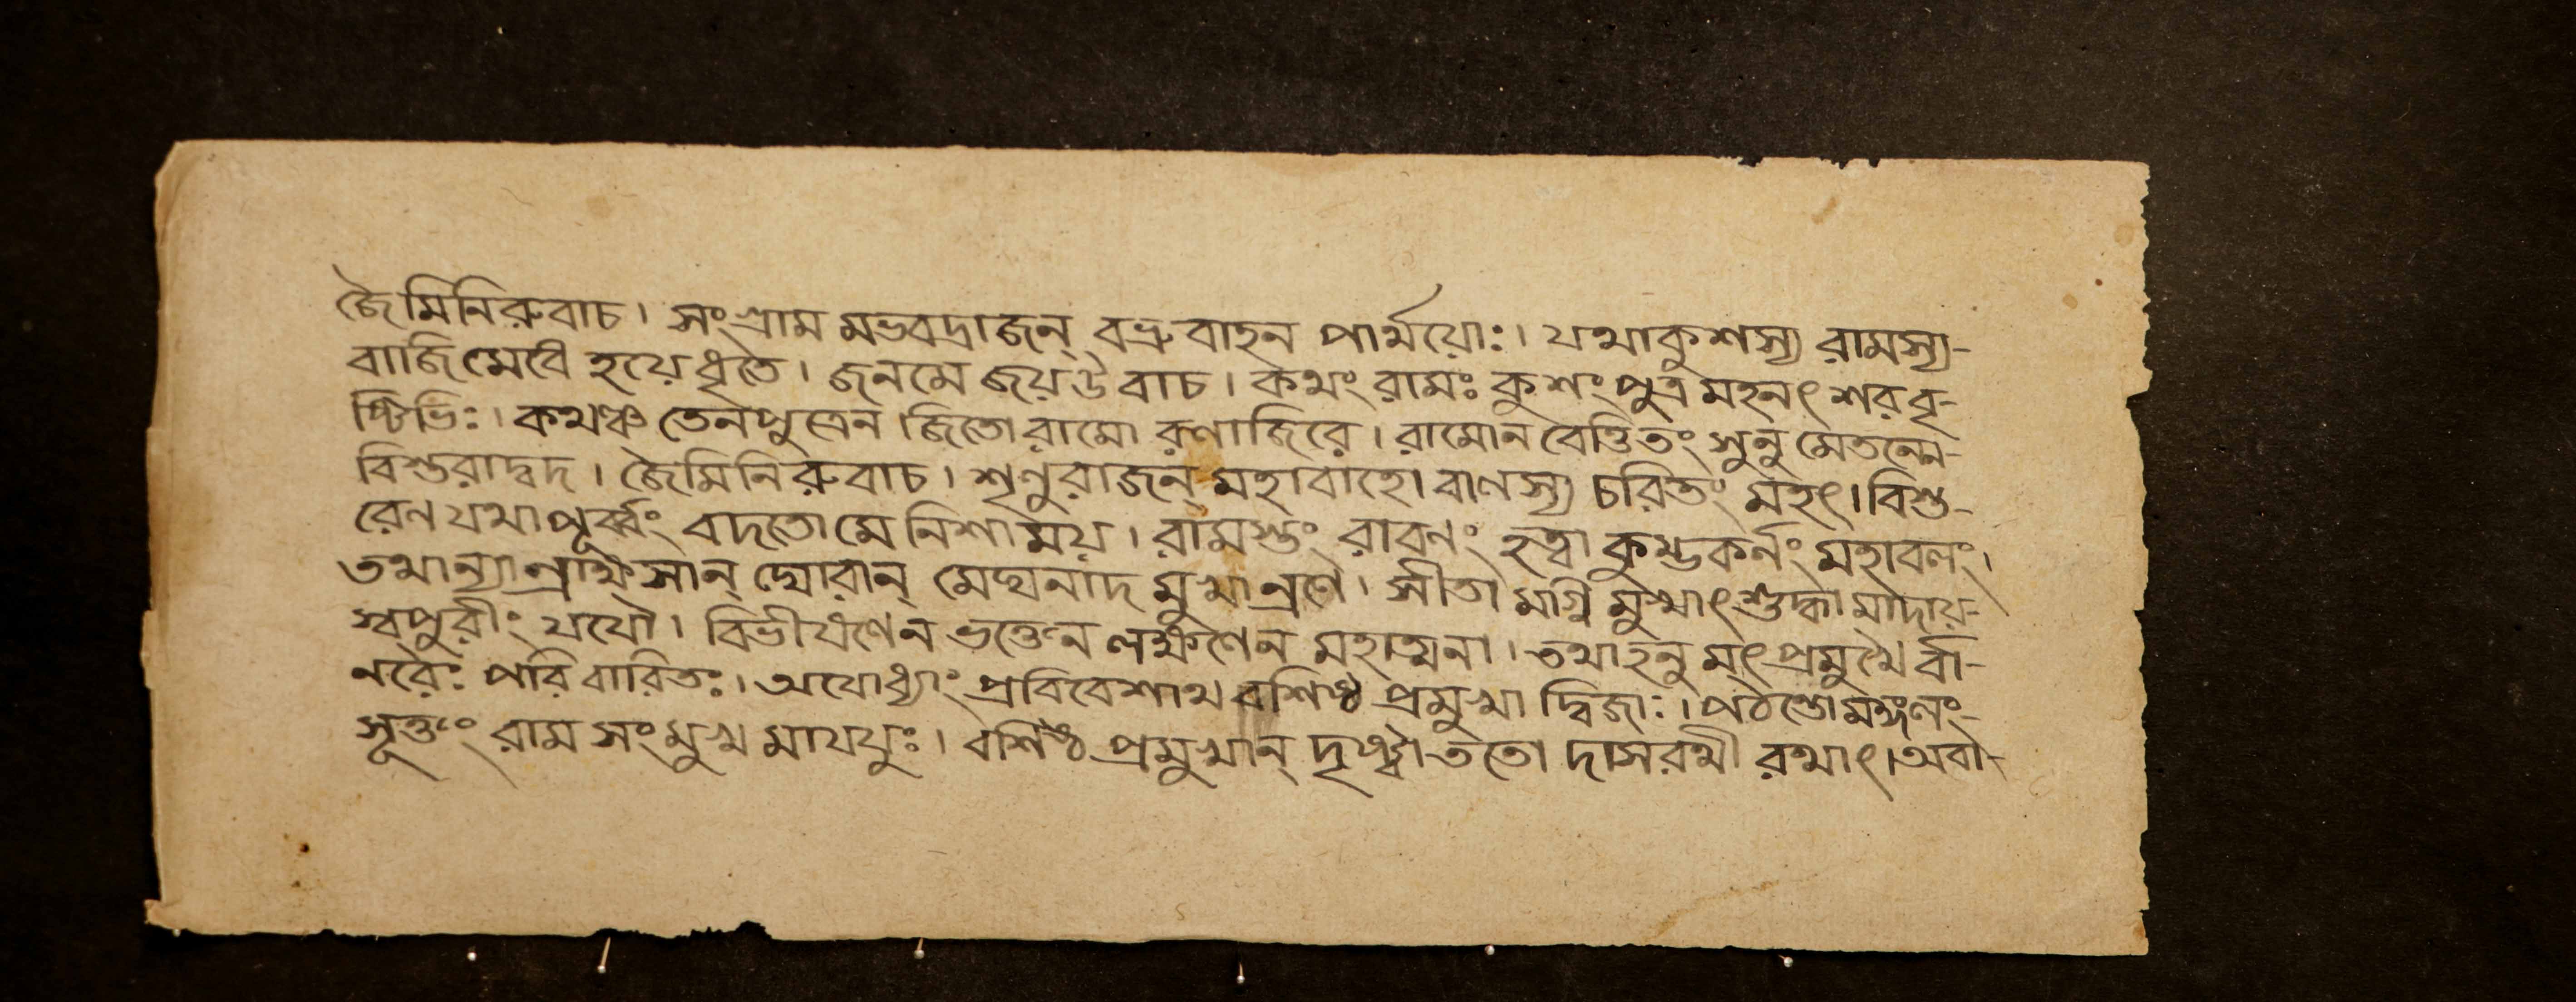 জৈমিনিরুবাচ। সংগ্রাম মভবদ্রাজন্ বভ্রুবাহন পার্থয়োঃ। যথাকুশস্য রামস্য-
বাজিমেধে হয়েধৃতে। জনমে জয়উবাচ। কথং রামঃ কুশং পুত্র মহনৎ শরবৃ-
ষ্টিভিঃ। কথঞ্চ তেনপুত্রেন জিতো রামো রণাজিরে। রামোন বেত্তিতং সুনু মেতন্মে-
বিস্তরাদ্বদ। জৈমিনি রুবাচ। শৃণুরাজন্ মহাবাহো রামস্য চরিতং মহৎ। বিস্ত-
রেণ যথাপূর্ব্বং বদতো মে নিশাময়। রামস্তং রাবণং হত্বা কুম্ভকর্নং মহাবলং।
তথান্যান্রাক্ষসান্ ঘোরান্ মেঘনাদ মুখান্রণে। সীতা মাগ্নি মুখাৎ শুদ্ধা মাদায়-
স্বপুরীং যযৌ। বিভীষণেন ভক্তেন লক্ষণেন মহাত্মনা। তথাহনু মৎপ্রমুখৈ র্বা-
নরৈঃ পরিবারিতঃ। অযোধ্যাং প্রবিবেশাথ বশিষ্ঠ প্রমুখা দ্বিজাঃ। পঠন্তোমঙ্গলং-
সূক্তং রাম সংমুখ মাযযুঃ। বশিষ্ঠ প্রমুখান্ দৃষ্ট্বা ততো দাসরথী রথাৎ। অবা-